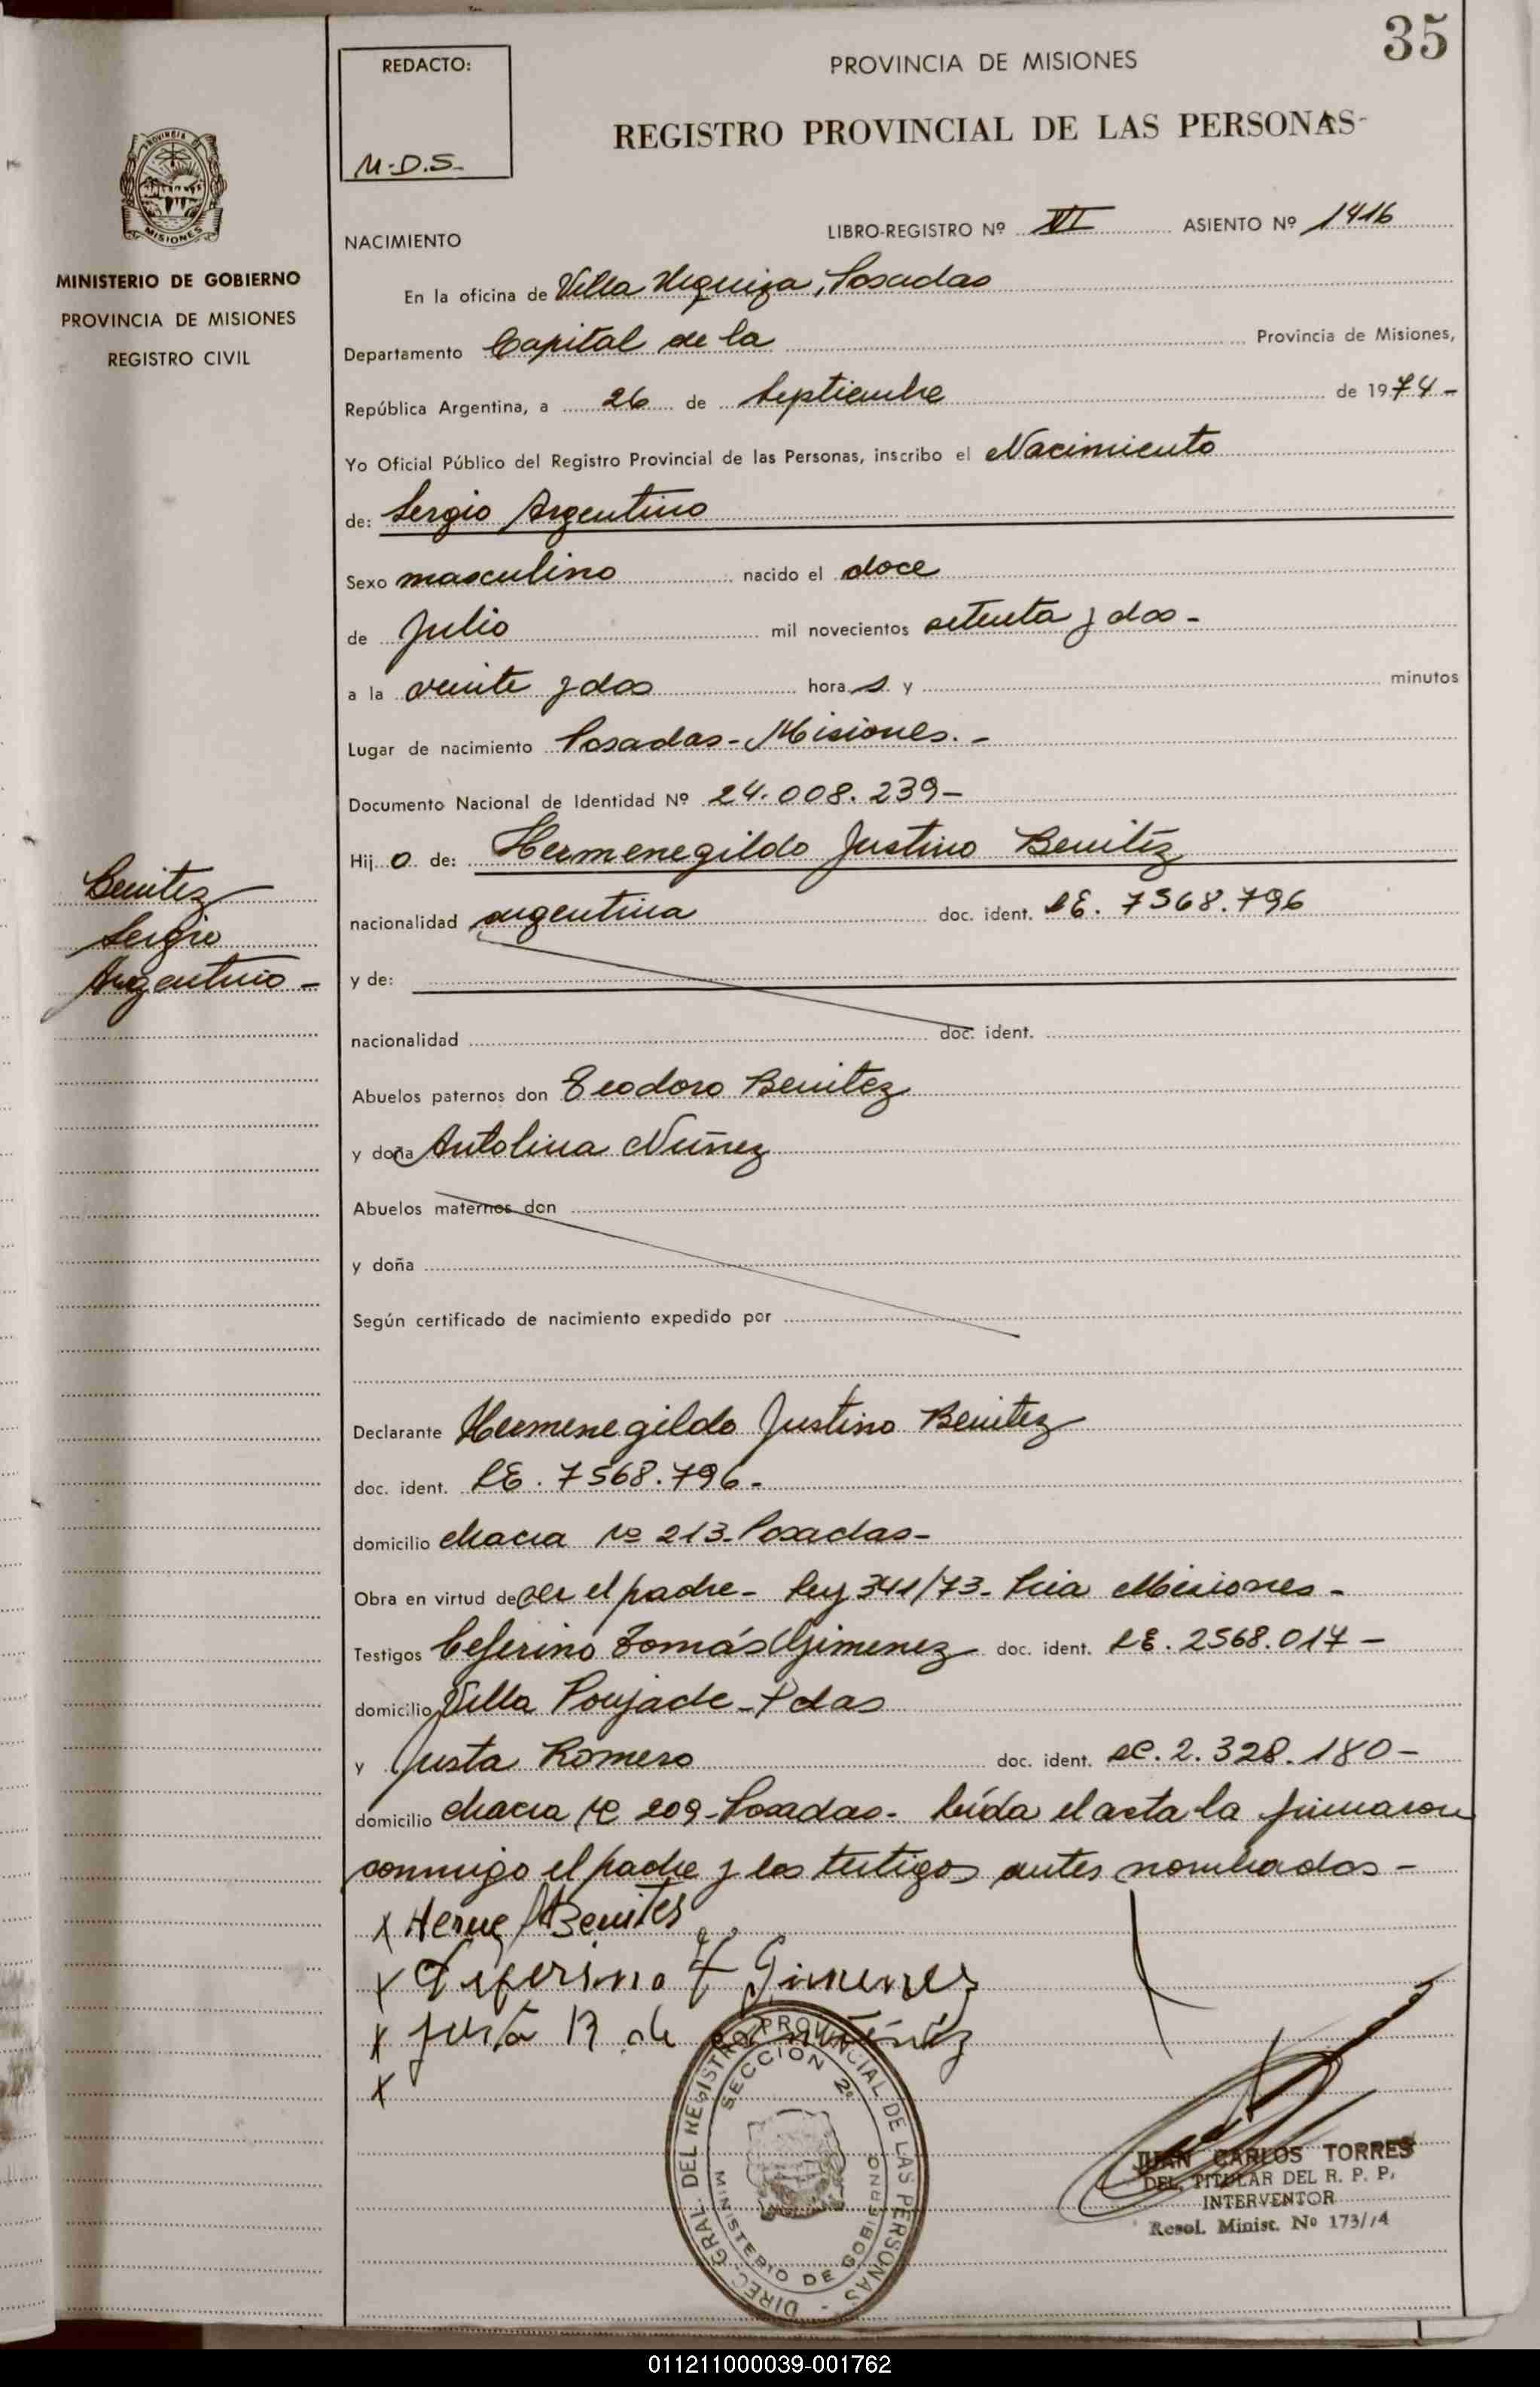 35
REDACTO:
M.D.S.
PROVINCIA DE MISIONES
REGISTRO PROVINCIAL DE LAS PERSONAS
PROVINCIA
MISIONES
MINISTERIO DE GOBIERNO
PROVINCIA DE MISIONES
REGISTRO CIVIL
NACIMIENTO
LIBRO-REGISTRO Nº VI ASIENTO Nº 1416
En la oficina de Villa Urquiza, Posadas
Departamento Capital de la Provincia de Misiones,
República Argentina, a 26 de Septiembre de 1974-
Yo Oficial Público del Registro Provincial de las Personas, inscribo el Nacimiento
de: Sergio Argentino
Sexo masculino nacido el doce
de Julio mil novecientos setenta y dos -
a la veinte y dos hora s y minutos
Lugar de nacimiento Posadas - Misiones. -
Documento Nacional de Identidad Nº 24.008.239-
Hij o de: Hermenegildo Justino Benitez
Benitez
Sergio
Argentino -
nacionalidad argentina doc. ident. LE. 7568.796
y de:
nacionalidad doc. ident.
Abuelos paternos don Teodoro Benitez
y doña Antolina Núñez
Abuelos maternos don
y doña
Según certificado de nacimiento expedido por
Declarante Hermenegildo Justino Benitez
doc. ident. LE. 7568.796-
domicilio chacra Nº 213- Posadas-
Obra en virtud de ser el padre - Ley 341/73- Pcia Misiones -
Testigos Ceferino Tomás Gimenez doc. ident. LE. 2568.017 -
domicilio Villa Poujade - Pdas
y Justa Romero doc. ident. LC. 2.328.180-
domicilio chacra Nº 209- Posadas- Leída el acta la firmaron
conmigo el padre y los testigos antes nombrados -
x Herme Benites
x Seferino T Gimenez
x Justa R de
x
DIREC. GRAL. DEL REGISTRO PROVINCIAL DE LAS PERSONAS -
SECCION 2ª
MINISTERIO DE GOBIERNO
JUAN CARLOS TORRES
DEL. TITULAR DEL R. P. P.
INTERVENTOR
Resol. Minist. Nº 173/74
011211000039-001762